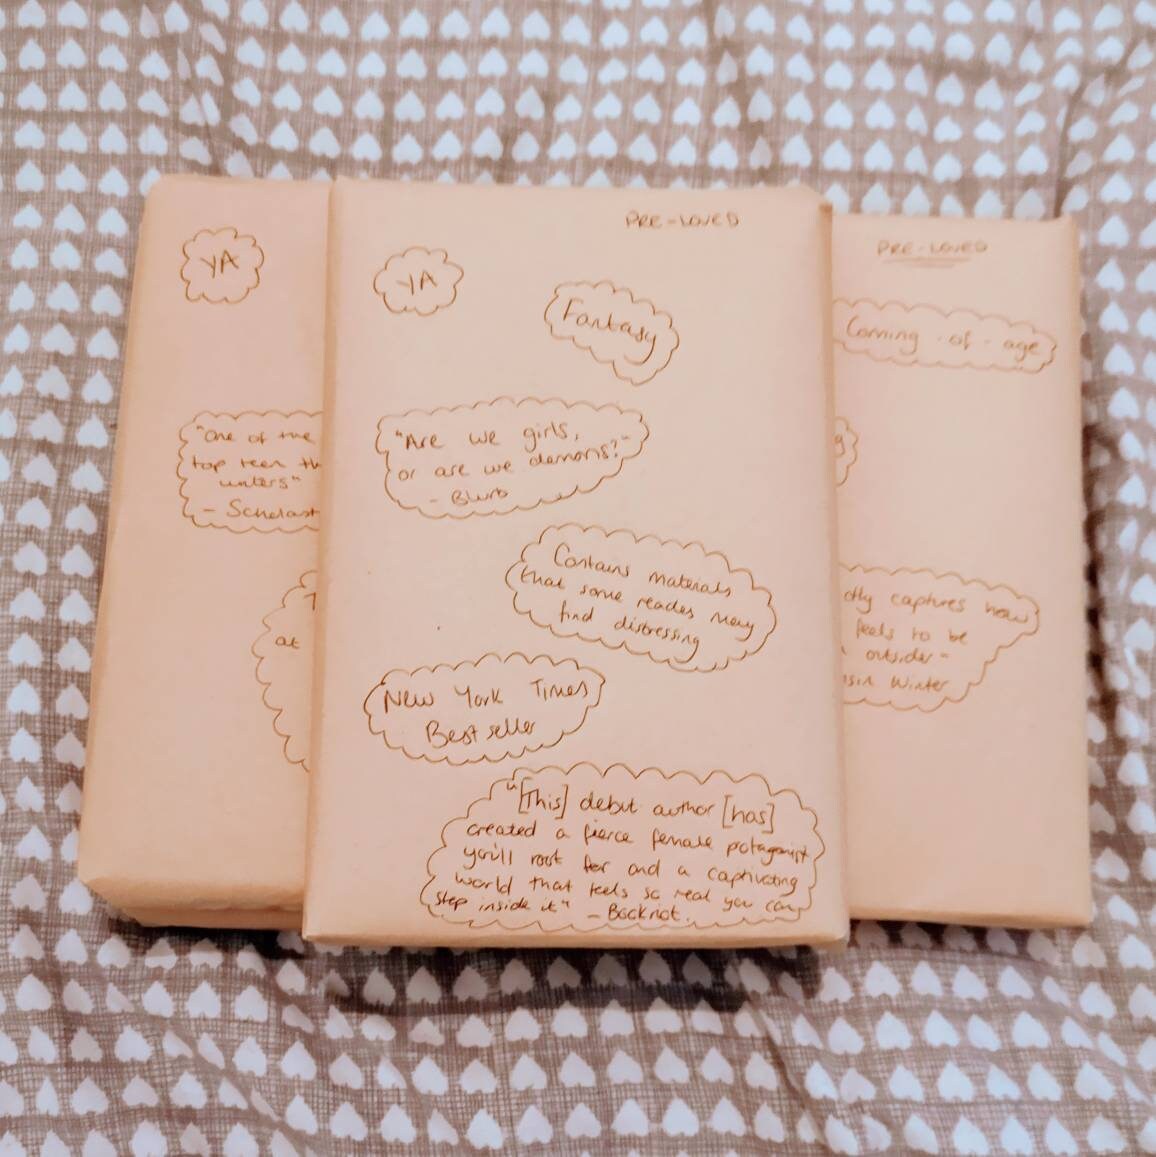 YA
"One of the
top teen th
writers"
- Scholast
at
PRE-LOVED
YA
Fantasy
"Are we girls,
or are we demons?"
- Blurb
Contains materials
that some reades may
find distressing
New York Times
Best seller
"[This] debut author [has]
created a fierce female potagonist
you'll root for and a captivating
world that feels so real you can
step inside it" - Booknot.
PRE-LOVED
Coming-of-age
g
ctly captures how
feels to be
outsider"
sin Winter